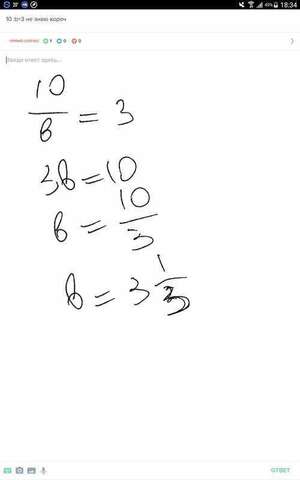 18:34
10 :b=3 не знаю короч
Введи ответ здесь...
10/в = 3
3в=10
в = 10/3
в = 3 1/3
ОТВЕТ